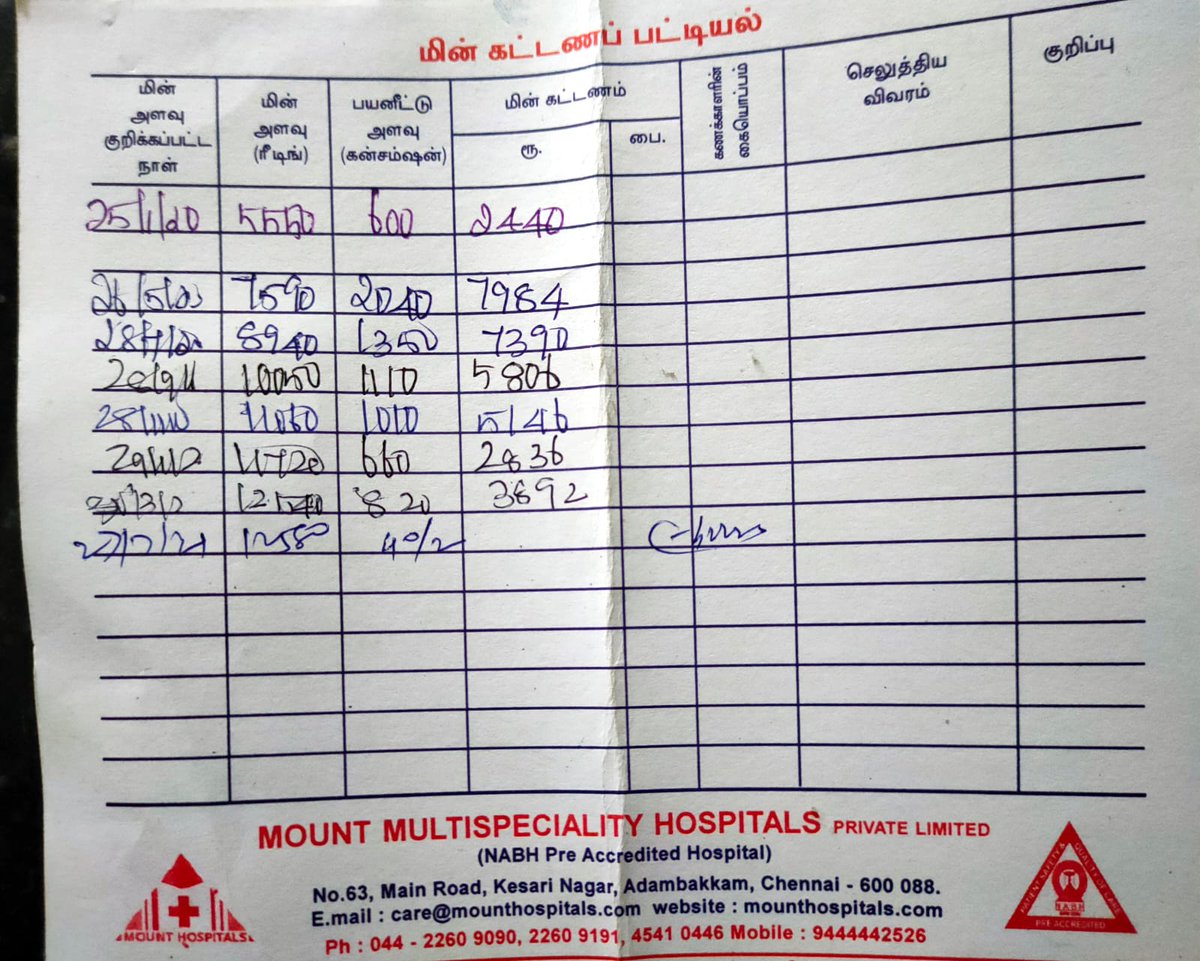 மின் கட்டணப் பட்டியல்
மின் அளவு குறிக்கப்பட்ட நாள்
மின் அளவு (ரீடிங்)
பயனீட்டு அளவு (கன்சம்ஷன்)
மின் கட்டணம்
ரூ. பை.
கணக்காளரின் கையொப்பம்
செலுத்திய விவரம்
குறிப்பு
25/1/20 5550 600 2440
7590 2040 7984
8940 1350 7390
10050 1110 5806
11060 1010 5146
11720 660 2836
820 3892
MOUNT MULTISPECIALITY HOSPITALS PRIVATE LIMITED
(NABH Pre Accredited Hospital)
No.63, Main Road, Kesari Nagar, Adambakkam, Chennai - 600 088.
E.mail : care@mounthospitals.com website : mounthospitals.com
Ph : 044 - 2260 9090, 2260 9191, 4541 0446 Mobile : 9444442526
MOUNT HOSPITALS
PATIENT SAFETY & QUALITY OF CARE
NABH
PRE ACCREDITED